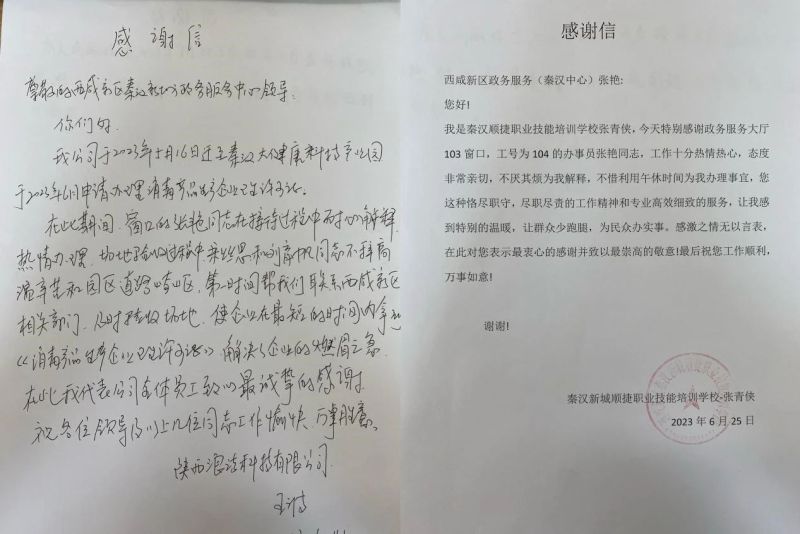 感谢信
尊敬的西咸新区秦汉新城政务服务中心领导：
你们好。
我公司于2023年5月16日迁至秦汉大健康科技产业园
于2023年6月申请办理消毒产品生产企业卫生许可证。
在此期间，窗口的张艳同志在接待过程中耐心解释
热情办理，场地验收过程中 和 同志不辞高
温辛苦和园区道路崎岖，第一时间帮我们联系西咸新区
相关部门，及时 场地，使企业在最短的时间内拿到
《消毒产品生产企业卫生许可证》，解决了企业的燃眉之急。
在此我代表公司全体员工致以最诚挚的感谢。
祝各位领导及以上几位同志工作愉快，万事胜意。
陕西 科技有限公司
感谢信
西咸新区政务服务（秦汉中心）张艳:
您好!
我是秦汉顺捷职业技能培训学校张青侠，今天特别感谢政务服务大厅
103 窗口，工号为 104 的办事员张艳同志，工作十分热情热心，态度
非常亲切，不厌其烦为我解释，不惜利用午休时间为我办理事宜，您
这种恪尽职守，尽职尽责的工作精神和专业高效细致的服务，让我感
到特别的温暖，让群众少跑腿，为民众办实事。感激之情无以言表，
在此对您表示最衷心的感谢并致以最崇高的敬意!最后祝您工作顺利，
万事如意!
谢谢!
秦汉新城顺捷职业技能培训学校-张青侠
2023 年 6 月 25 日